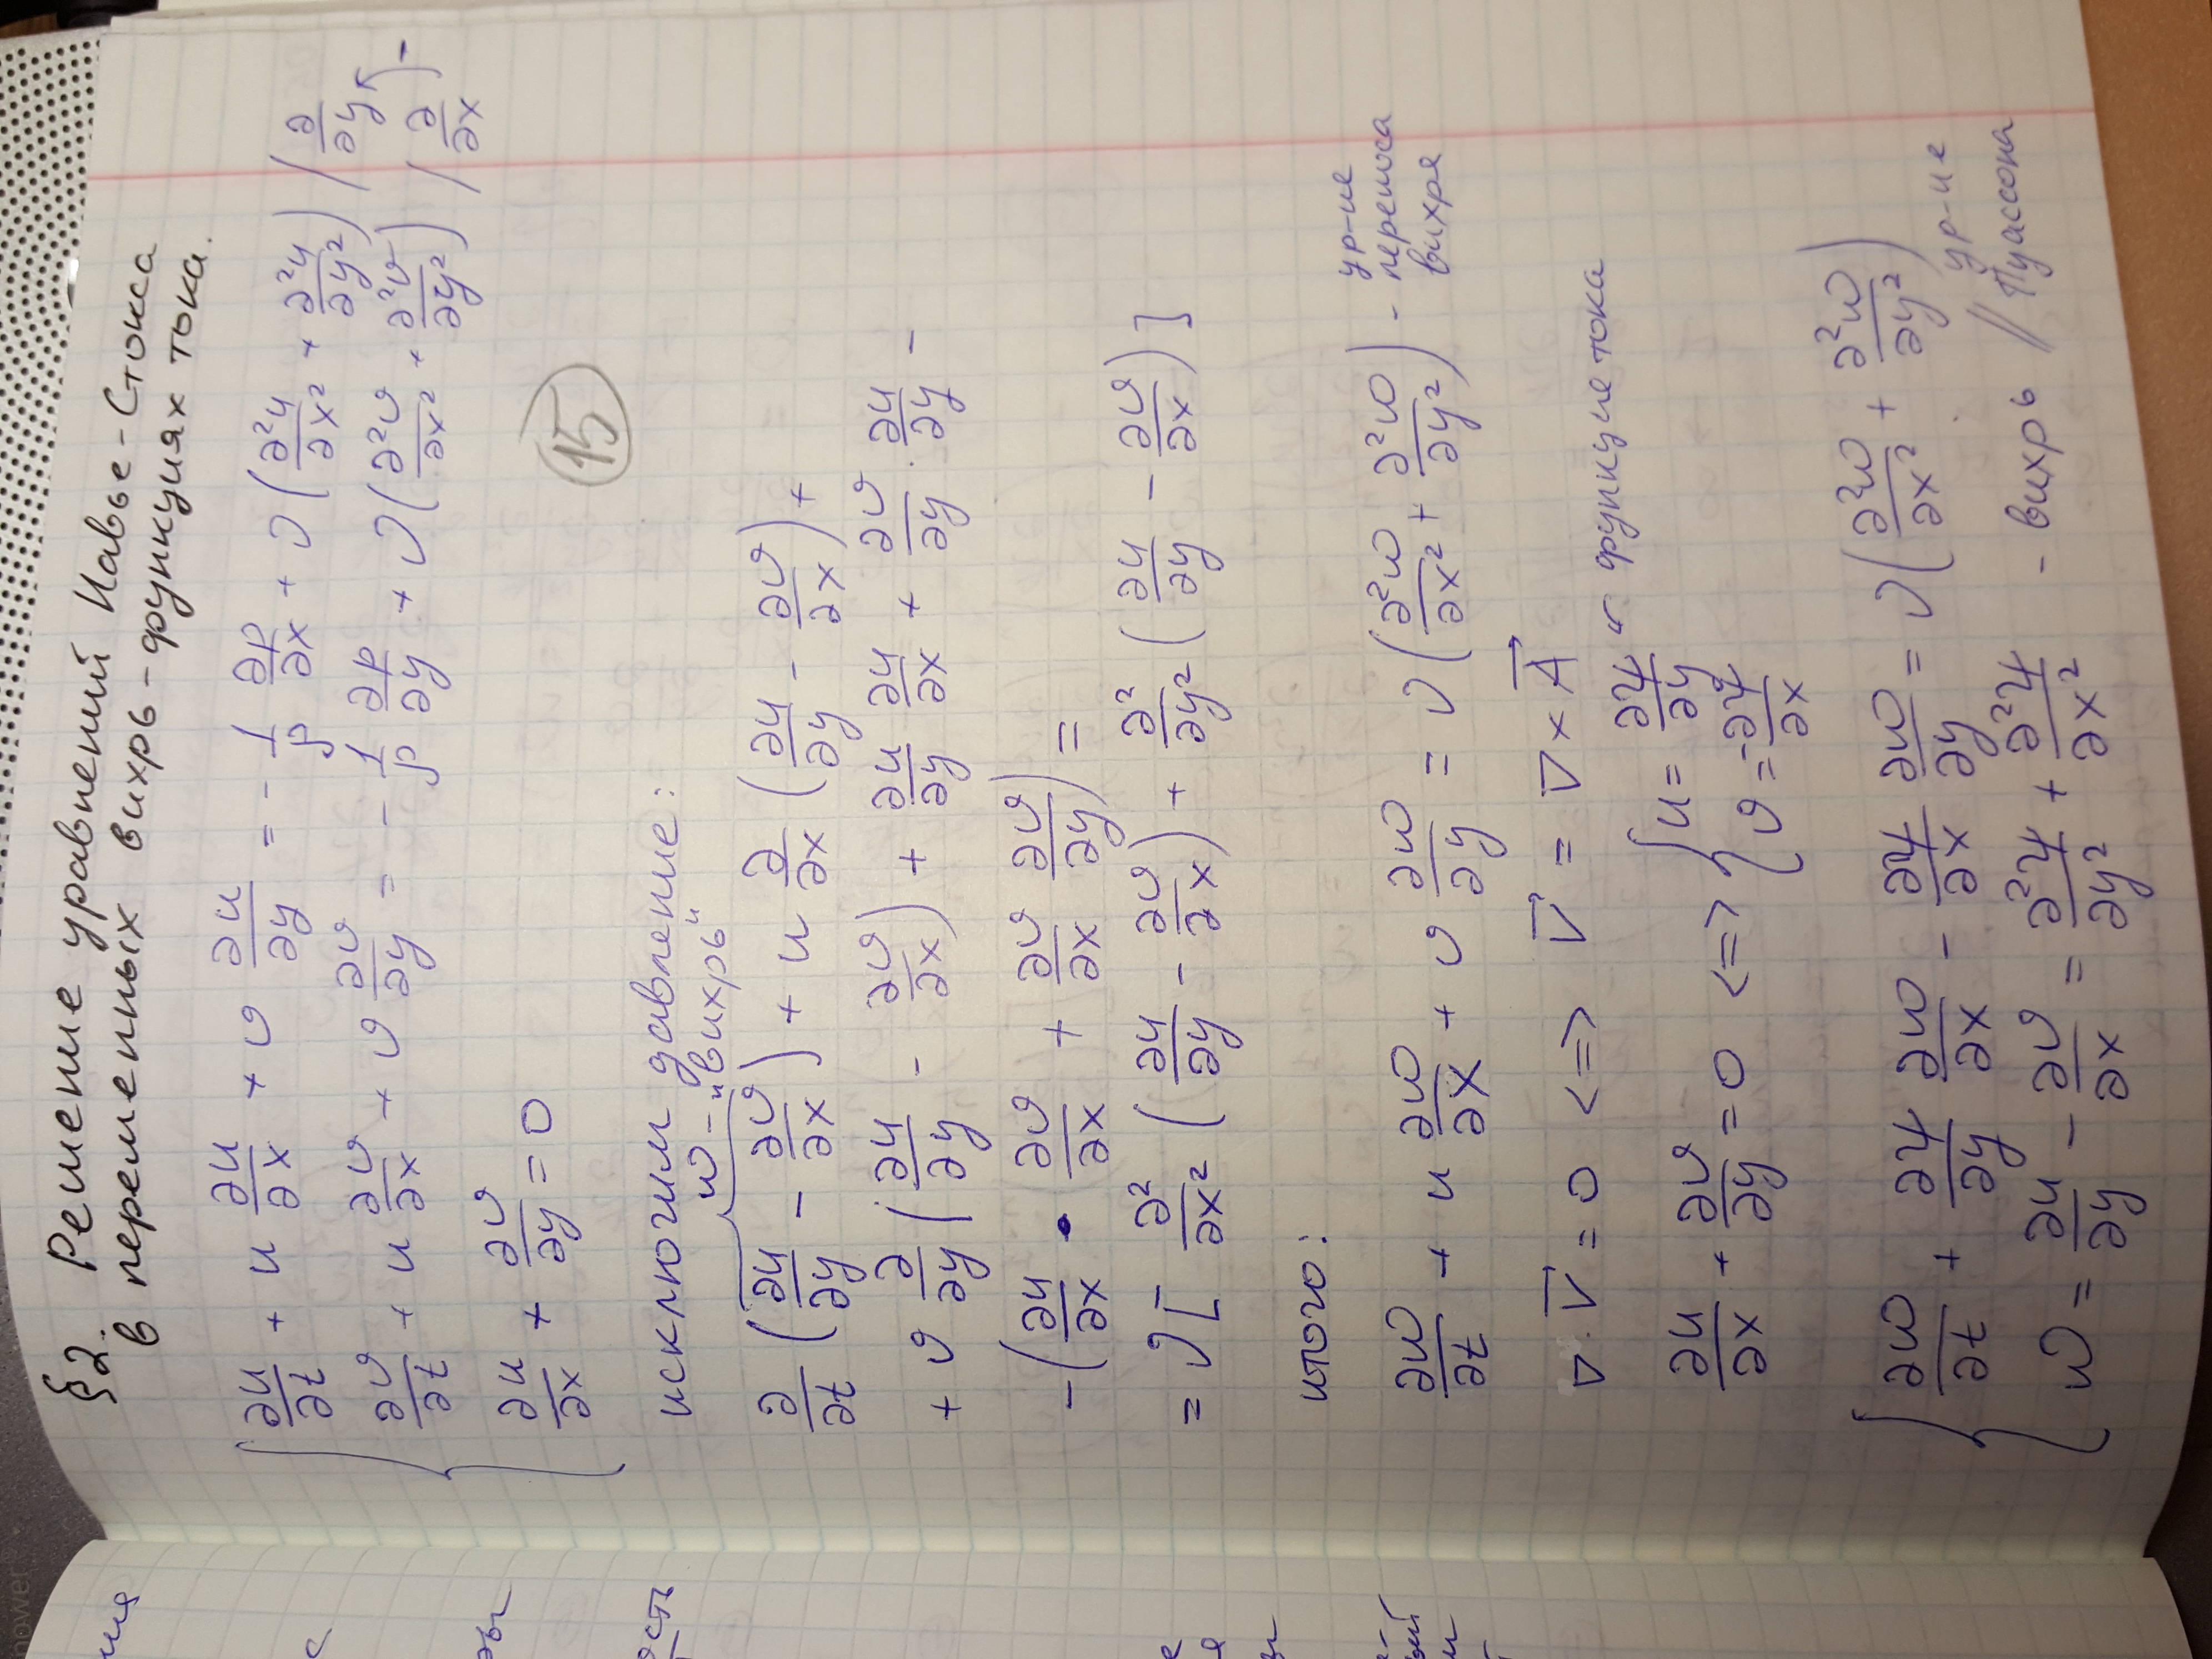 power
ния
§2. Решение уравнений Навье-Стокса
в переменных вихрь-функциях тока.
∂u/∂t + u ∂u/∂x + v ∂u/∂y = - 1/ρ ∂p/∂x + ν(∂²u/∂x² + ∂²u/∂y²) / ∂/∂y
∂v/∂t + u ∂v/∂x + v ∂v/∂y = - 1/ρ ∂p/∂y + ν(∂²v/∂x² + ∂²v/∂y²) / ∂/∂x -
∂u/∂x + ∂v/∂y = 0
15
исключим давление:
ω - „вихрь"
∂/∂t (∂u/∂y - ∂v/∂x) + u ∂/∂x (∂u/∂y - ∂v/∂x) +
+ v ∂/∂y (∂u/∂y - ∂v/∂x) + ∂u/∂y ∂u/∂x + ∂v/∂y · ∂u/∂y -
- (∂u/∂x · ∂v/∂x + ∂v/∂x ∂v/∂y) =
= ν[ ∂²/∂x² (∂u/∂y - ∂v/∂x) + ∂²/∂y² (∂u/∂y - ∂v/∂x) ]
итого:
∂ω/∂t + u ∂ω/∂x + v ∂ω/∂y = ν(∂²ω/∂x² + ∂²ω/∂y²) - ур-ие
переноса
вихря
∇·V⃗ = 0 <=> V⃗ = ∇×A⃗
∂u/∂x + ∂v/∂y = 0 <=> { u = ∂Ψ/∂y ← функцие тока
v = -∂Ψ/∂x
∂ω/∂t + ∂Ψ/∂y ∂ω/∂x - ∂Ψ/∂x ∂ω/∂y = ν(∂²ω/∂x² + ∂²ω/∂y²)
ω = ∂u/∂y - ∂v/∂x = ∂²Ψ/∂y² + ∂²Ψ/∂x² - вихрь // ур-ие
Пуассона